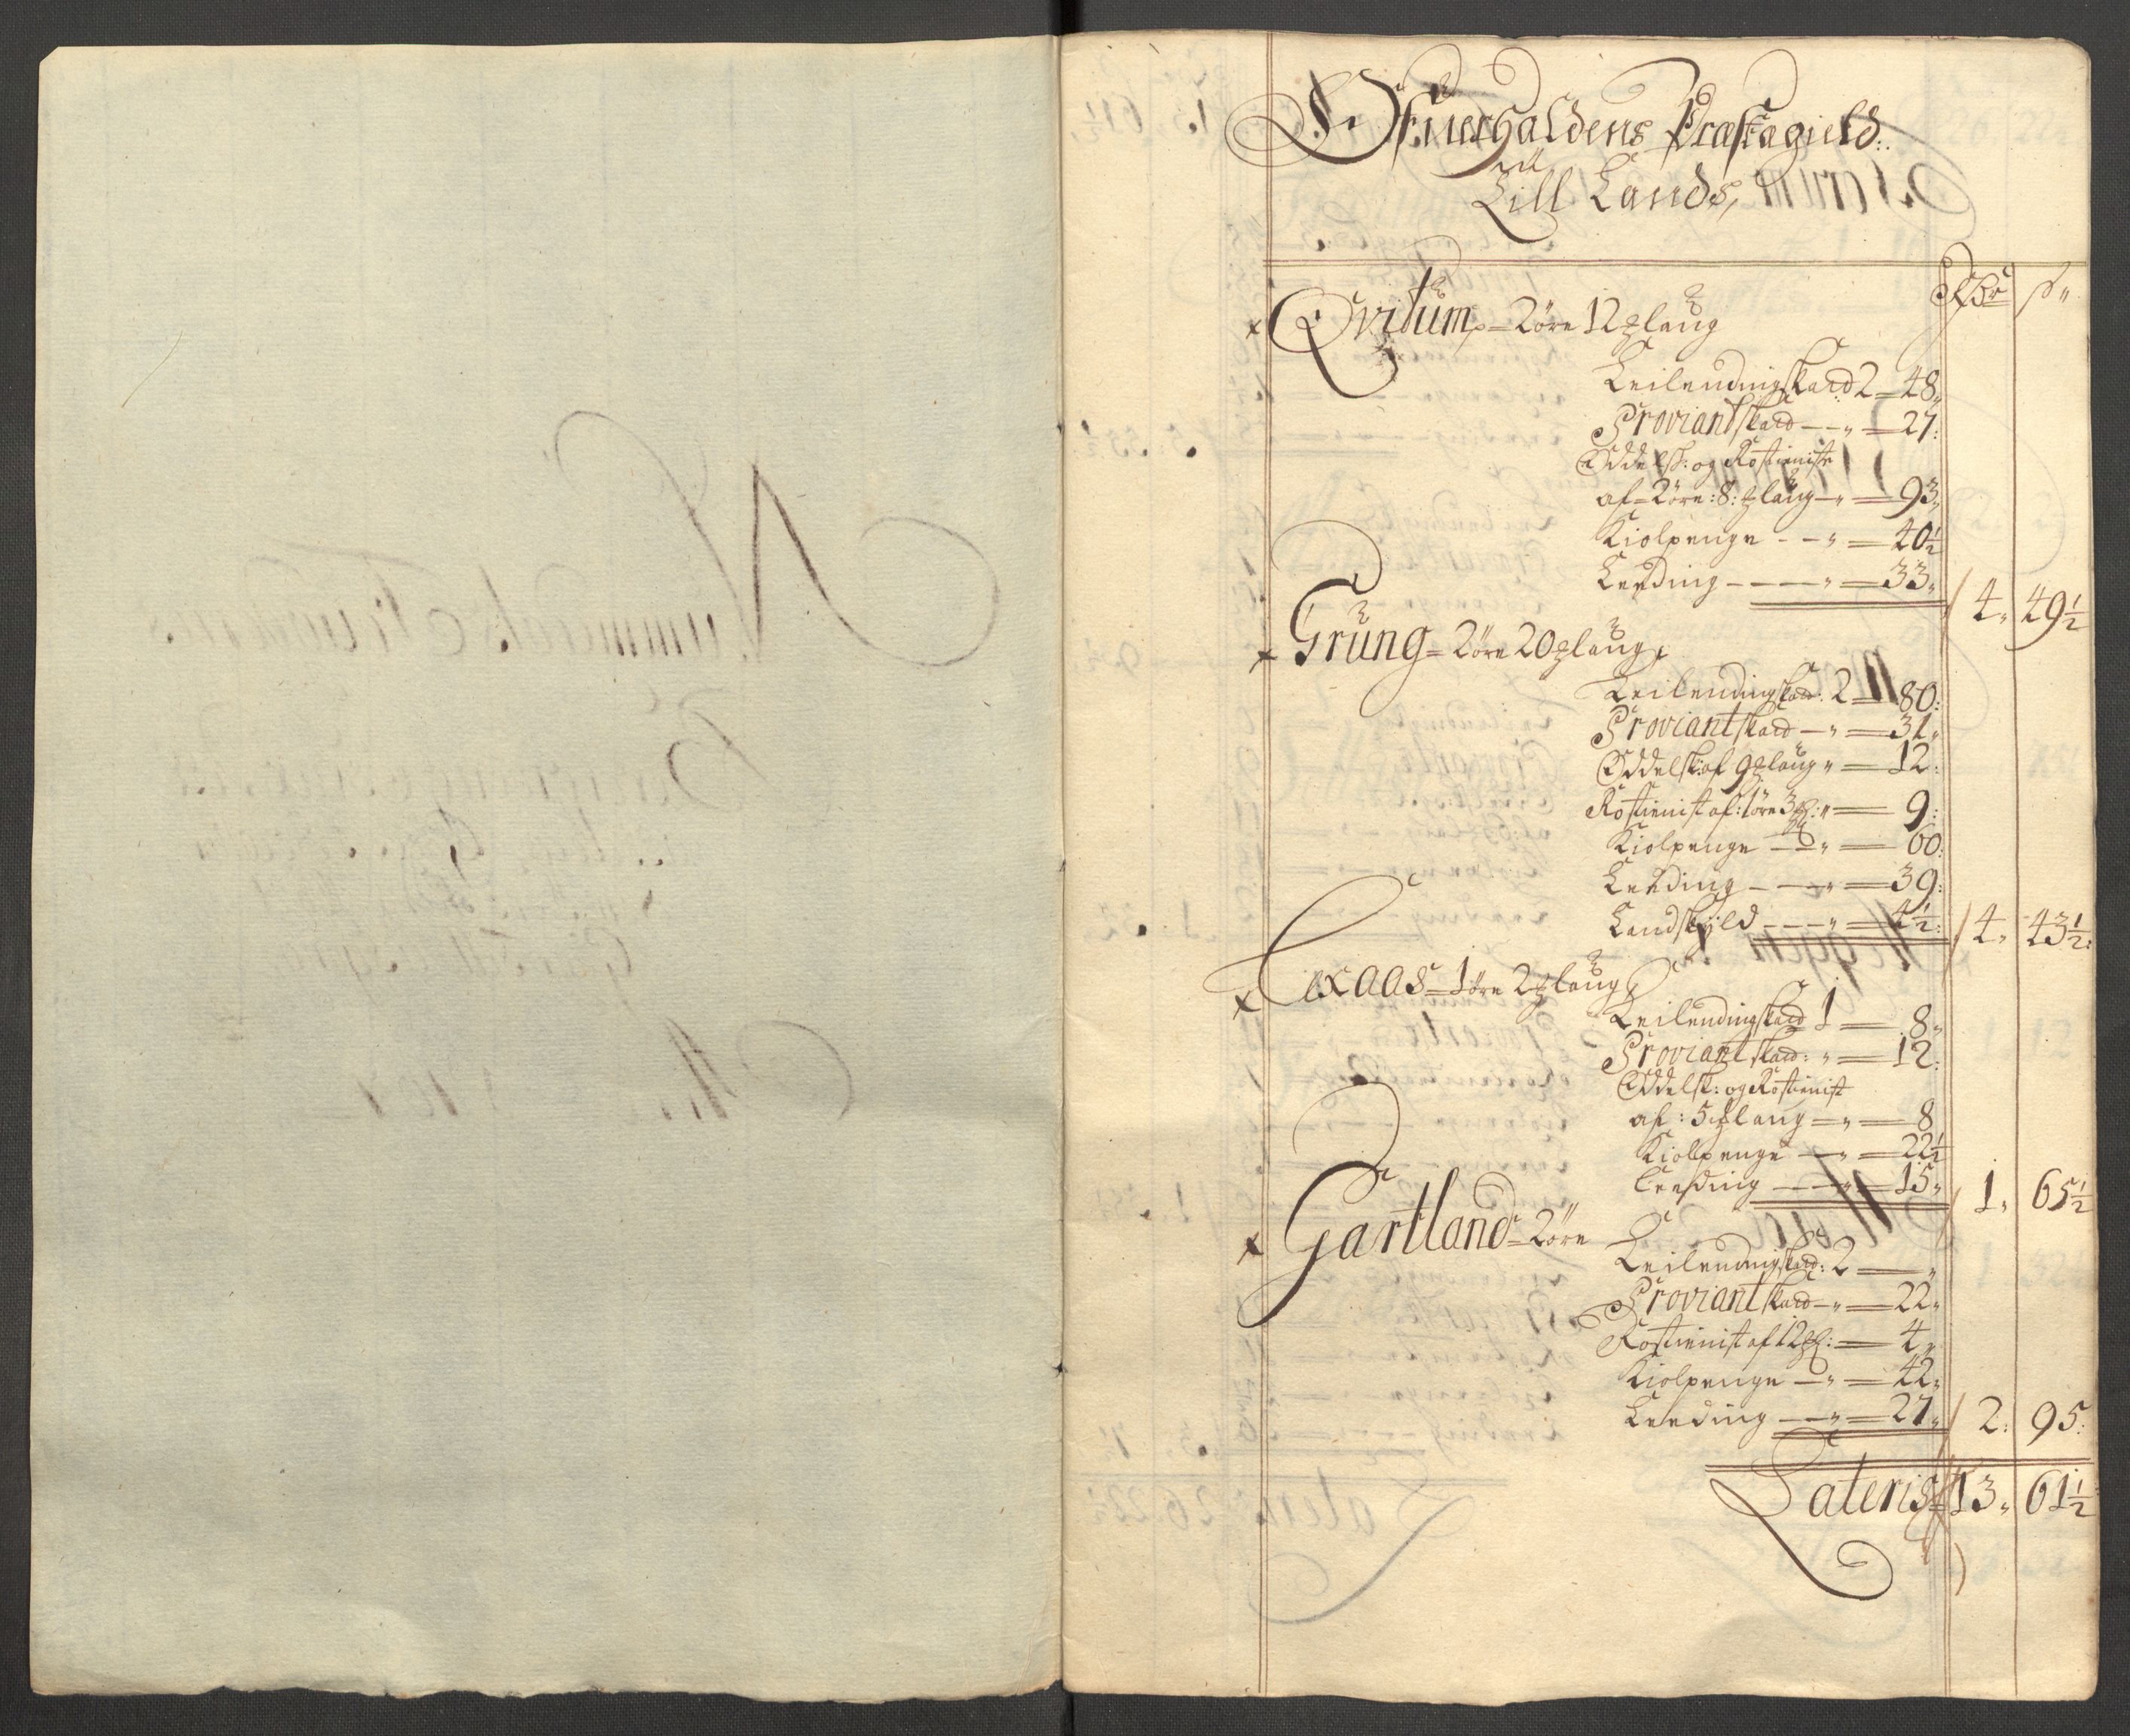 Offuerhaldens Præstagield
Till Lands,
Rdr ß
Qvitum = 2 öre 12 ℔ laug
Leilendingskard 2 = 48
Proviantskatt — " = 27
Oddelsk: og Rostienist
af = 2 öre: 8: ℔ laug — " = 93
Kiolpenge - - " = 40½
Leeding - - - " = 33
4 " 49½
Grüng = 2 öre 20 ℔ laug
Leilendingskatt: 2 = 80:
Proviantskatt — " = 31
Oddelsk: af 9 ℔ laug " = 12:
Rostienist af: 1 öre 3 ℔: " = 9:
Kiolpenge — " = 60:
Leeding - - - " = 39:
Landskyld - - - " = 4½:
4 " 43½:
Lexaas = 1 öre 2 ℔ laug
Leilendingskatt 1 = 8
Proviantskatt: " = 12:
Oddelsk: og Rostienist
af: 5 ℔ laug = " = 8
Kiolpenge — " = 22½
Leeding - - - " = 15
1 " 65½
Gartland = 2 öre
Leilendingskatt: 2 = "
Proviantskatt — " = 22
Rostienist af 12 ℔: = 4
Kiolpenge — " = 42
Leeding — " = 27
2: 95:
Lateris 13 " 61½